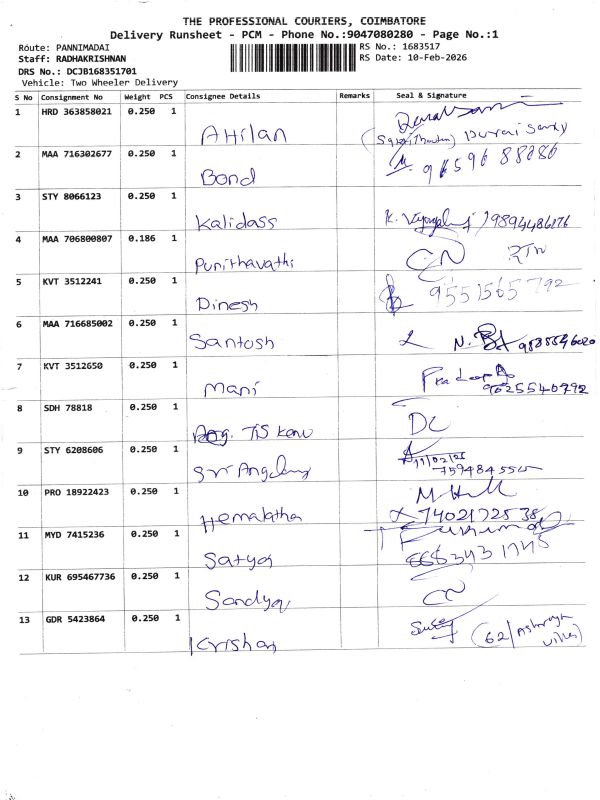 THE PROFESSIONAL COURIERS, COIMBATORE
Delivery Runsheet - PCM - Phone No.:9047080280 - Page No.:1
Route: PANNIMADAI
RS No.: 1683517
Staff: RADHAKRISHNAN
RS Date: 10-Feb-2026
DRS No.: DCJB168351701
Vehicle: Two Wheeler Delivery
S No Consignment No Weight PCS Consignee Details Remarks Seal & Signature
1 HRD 363858021 0.250 1 AHilan
2 MAA 716302677 0.250 1 Bond
3 STY 8066123 0.250 1 Kalidass 9894486176
4 MAA 706800807 0.186 1 Punithavathi CN
5 KVT 3512241 0.250 1 Dinesh 9551565792
6 MAA 716685002 0.250 1 Santosh
7 KVT 3512650 0.250 1 Mani 9025540792
8 SDH 78818 0.250 1 DC
9 STY 6208606 0.250 1 Sri 11/02/26
10 PRO 18922423 0.250 1 Hemalatha
11 MYD 7415236 0.250 1 Satya
12 KUR 695467736 0.250 1 Sandya CN
13 GDR 5423864 0.250 1 Krishan